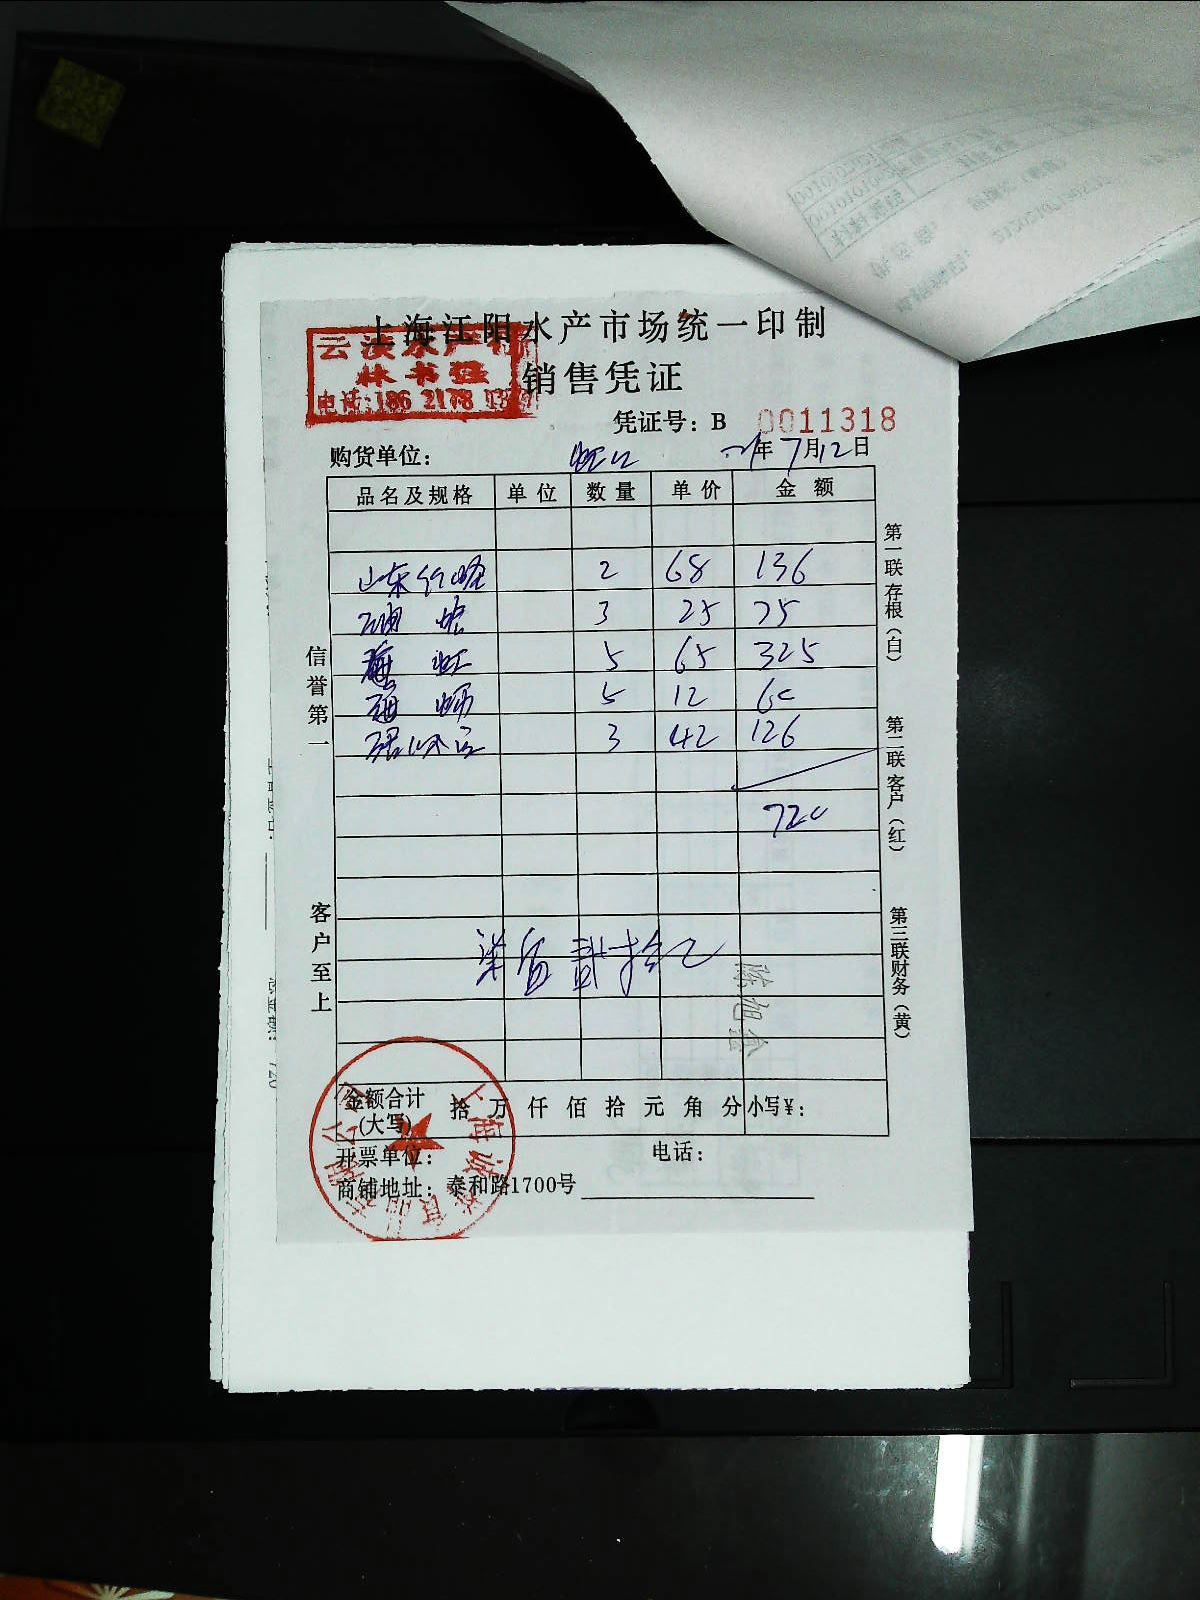 上海江阳水产市场统一印制
销售凭证
云溪水产行
林书强
电话:186 2178
凭证号：B 0011318
购货单位： 虹口 年7月12日
品名及规格 单位 数量 单价 金额
山东竹蛏 2 68 136
花蛤 3 25 75
虹 5 65 325
海蛳 5 12 60
3 42 126
720
柒佰贰拾元
陈旭鑫
信誉第一
客户至上
第一联存根（白）
第二联客户（红）
第三联财务（黄）
金额合计（大写） 拾万仟佰拾元角分 小写¥：
开票单位： 电话：
商铺地址：泰和路1700号